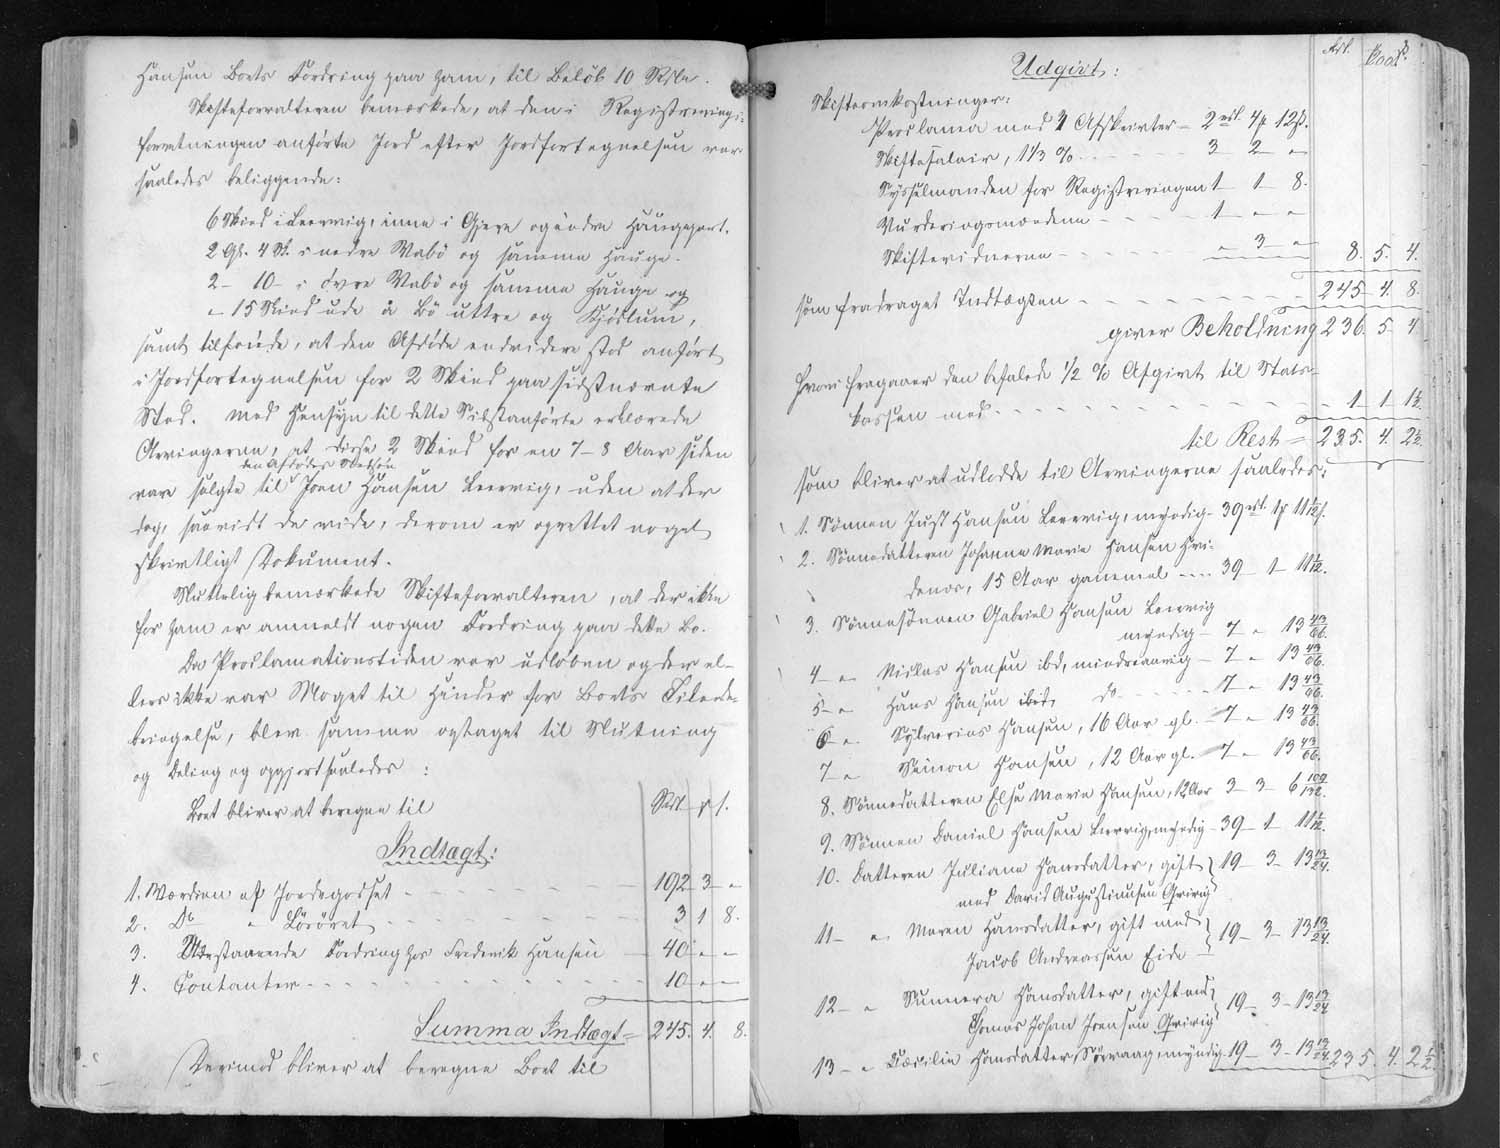 Hansen Boets Fordring paa ham, til Beløb 10 Rdlr.
Skifteforvalteren bemærkede, at den i Registrerings-
forretningen anførte Jord efter Jordfortegnelsen var
saaledes beliggende:
6 Skind i Leervig, inne i Gjere og øvdre Haugepart.
2 Gl. 4 Sk. i nedre Mabö og samme Hauge.
2 - 10 - i övre Mabö og samme Hauge og
" - 15 Skind ude à Bö uttre og Kjödlum,
samt tilføiede, at den Afdøde endvidere stod anført
i Jordfortegnelsen for 2 Skind paa sidstnævnte
Sted. Med Hensyn til dette Sidstanførte erklærede
Arvingerne, at disse 2 Skind for en 7-8 Aar siden
den Afdødes
vare solgte til Joen Hansen Leervig, uden at der
dog, saavidt de vide, derom er oprettet noget
skriftligt Dokument.
Sluttelig bemærkede Skifteforvalteren, at der ikke
for ham er anmeldt nogen Fordring paa dette Bo.
Da Proclamationstiden var udløben og der el-
lers ikke var Noget til Hinder for Boets Tilende-
bringelse, blev samme optaget til Slutning
og Deling og opgjort saaledes:
Boet bliver at beregne til
Rdl ₰ s.
Indtægt:
1. Værdien af Jordegodset - 192 - 3 - "
2. Do " Lösöret - 3 1 8.
3. Udestaaende Fordring hos Frederik Hansen - 40 - " - "
4. Contanter - 10 - " - "
Summa Indtægt = 245. 4. 8.
Derimod bliver at beregne Boet til
Udgivt:
Skifteomkostninger:
Proclama med 4 Afskrivter - 2 rdl. 4 ₰ 12 s.
Skiftesalair, 1 1/3 % - 3 - 2 - "
Sysselmanden for Registreringen 1 - 1 - 8.
Vurderingsmændene - 1 - " - "
Skiftevidnerne - " - 3 - " 8. 5. 4.
som fradraget Indtægten - 245 - 4. 8.
giver Beholdning 236. 5 - 4
hvori fragaaer den befalede 1/2 % Afgivt til Stats-
kassen med - 1 - 1 - 1 1/2
til Rest = 235. 4. 2 1/2
som bliver at udlodde til Arvingerne saaledes:
1. Sönnen Just Hansen Leervig, myndig - 39 rdl. 1 ₰ 11 1/12 s.
2. Sönnedatteren Johanna Maria Hansen Hvi-
denæs, 15 Aar gammel - 39 - 1 - 11 1/12.
3. Sönnesönnen Gabriel Hansen Leervig
myndig - 7 " 13 43/66.
4 - " Niclas Hansen ibd, mindreaarig - 7 " 13 43/66.
5 - " Hans Hansen ibid, do - 7 " 13 43/66.
6 - " Sylverius Hansen, 16 Aar gl. - 7 " 13 43/66.
7 " Simon Hansen, 12 Aar gl. - 7 " 13 43/66.
8. Sönnedatteren Else Maria Hansen, 12 Aar 3 - 3 - 6 109/132.
9. Sönnen Daniel Hansen Leervig, myndig - 39 - 1 11 1/12.
10. Datteren Juliane Hansdatter, gift } 19 - 3 - 13 13/24.
med David Augustinusen Gjerig
11 - " Maren Hansdatter, gift med } 19 - 3 - 13 13/24.
Jacob Andreassen Eide
12 - " Sunneva Hansdatter, gift med } 19 - 3 - 13 13/24
Thomas Johan Joensen Gjerig
13 - " Cæcilia Hansdatter, Sörvaag, myndig 19 - 3 - 13 13/24 235. 4. 2 1/2.